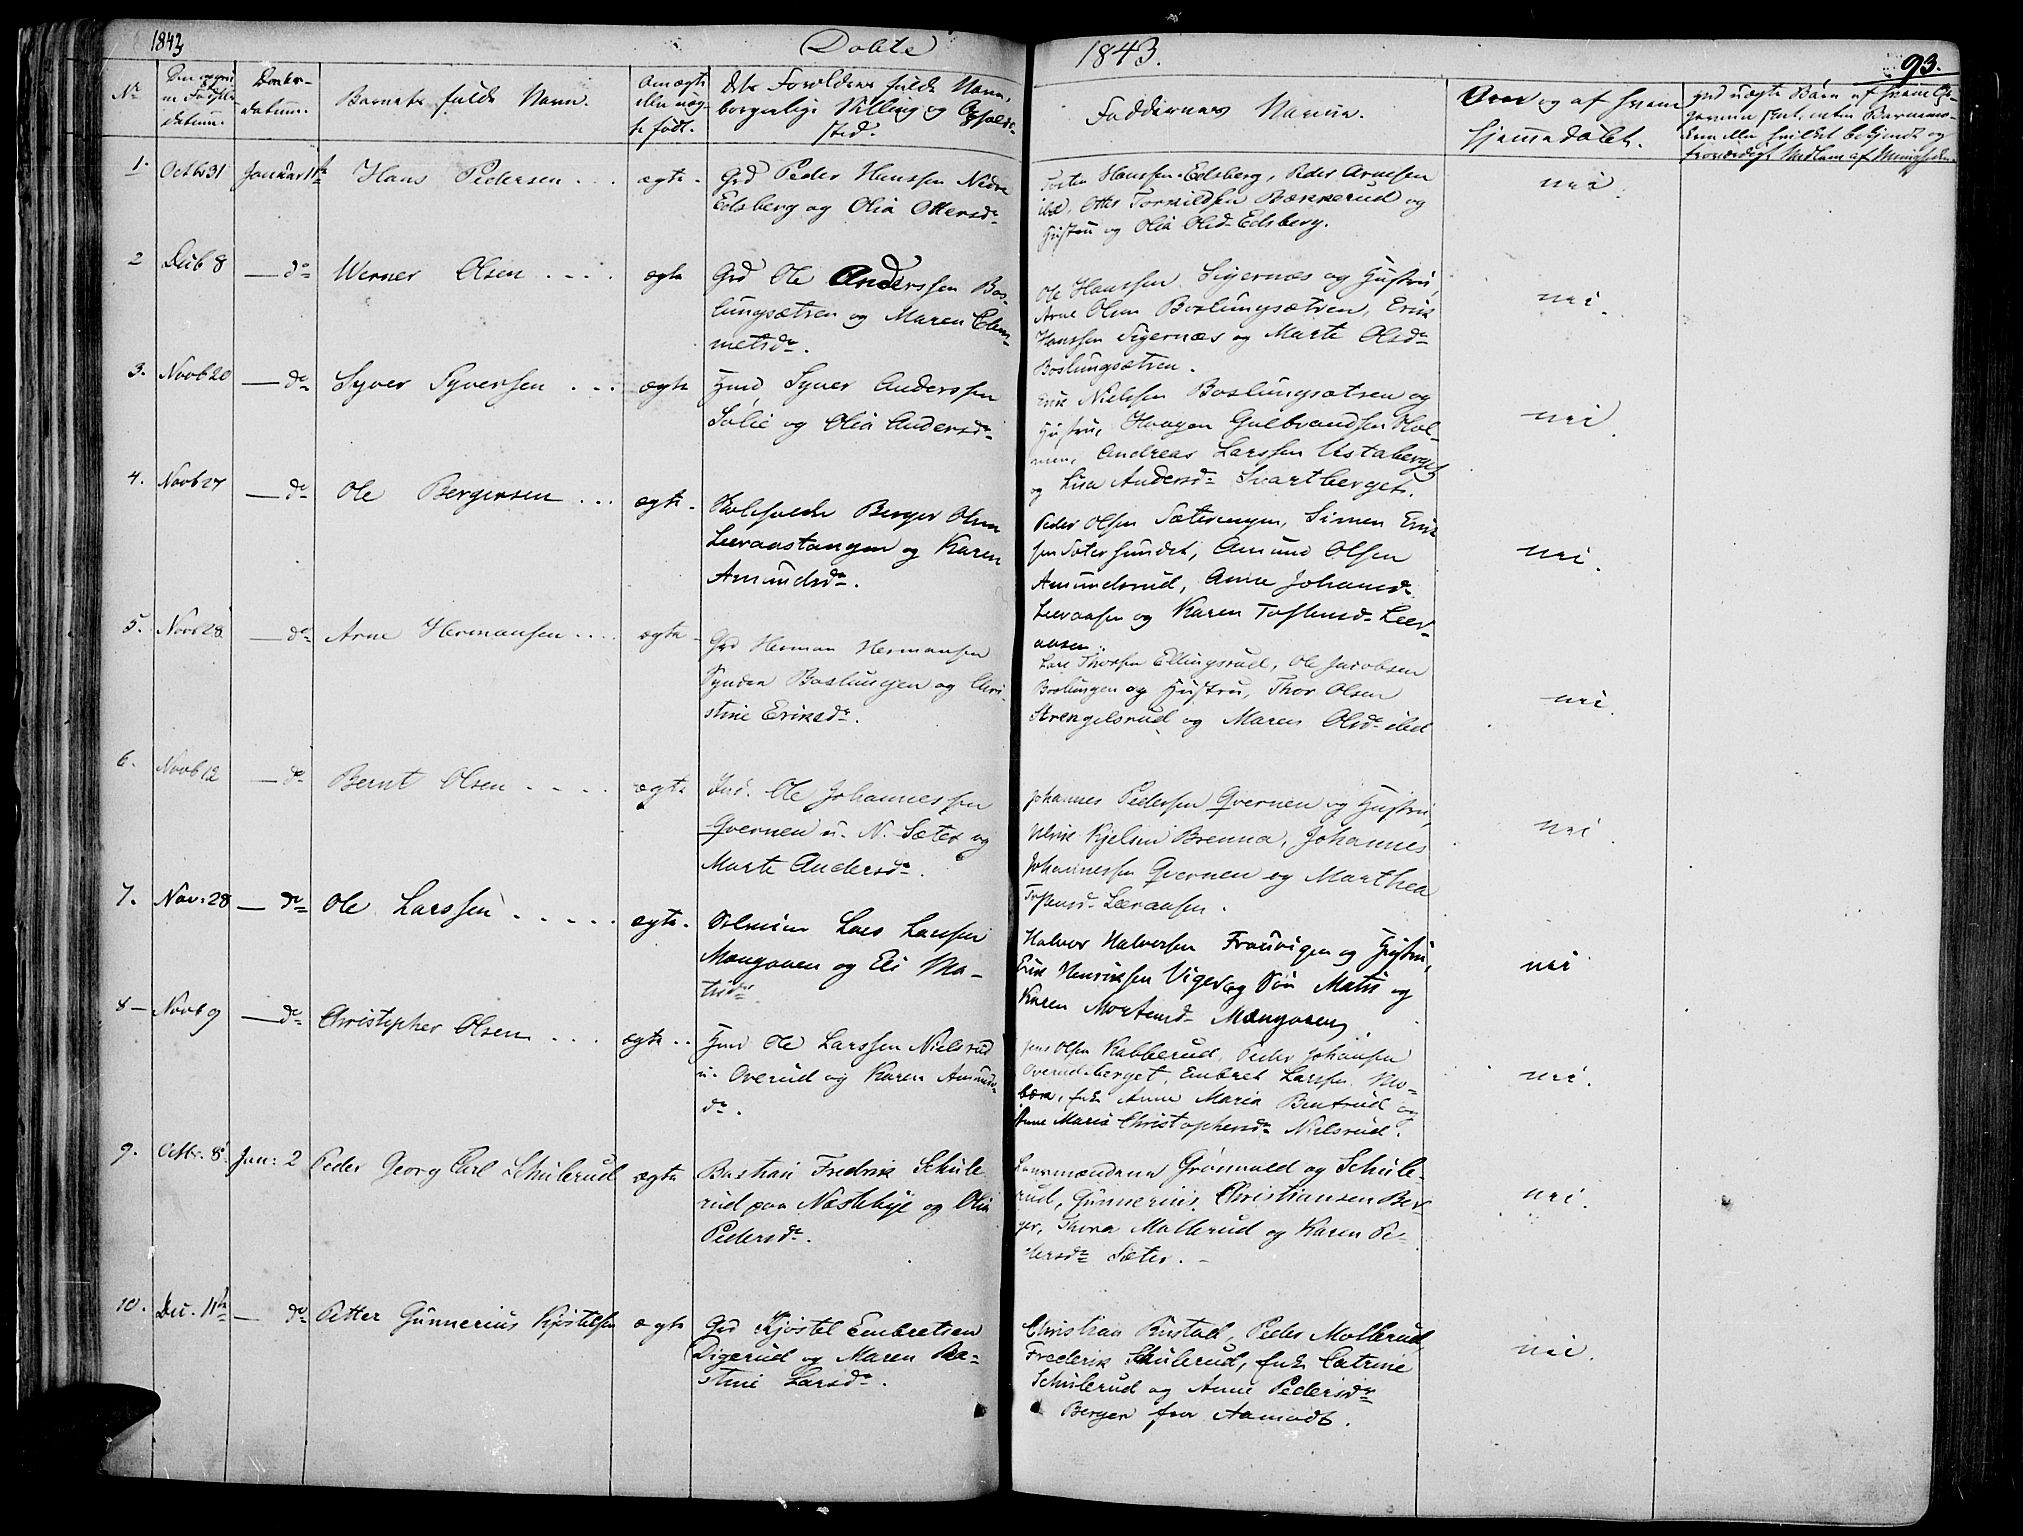 1843
Døbte
1843.
93.
No
datum.
Daabs-
datum.
Barnets fulde Navn.
om ægte
eller uæg-
te født.
Forældres fulde Navn,
borgerlige Stilling og Opholds-
sted.
Faddernes Navne.
og af hvem
hjemmedøbt.
1.
Octbr 31
Januar 1ste
Hans Pedersen . . .
ægte.
Grd Peder Hanssen Nedre
Edsberg og Olia Ottersdr
Hanssen Edsberg, Peder Arnesen
ibd, Otter Torkildsen Bænkerud og
Hustru og Olia Olsd Edsberg.
nei.
2
Decb 8
— do
Werner Olsen . . . .
ægte
Grd Ole Anderssen Bos-
lungsætren og Maren Clem-
metsdr.
Ole Hanssen Sigernæs og Hustru,
Arne Olsen Boslungsætren, Erik
Hanssen Sigernæs og Marte Olsdr
Boslungsætren.
nei.
3.
Novb 20
— do
Syver Syversen . . .
ægte
Hmd Syver Anderssen
Solie og Olia Andersdr
Erik Nielsen Boslungsætren og
Hustru, Haagen Gulbrandsen Hol-
men, Andreas Larssen Ustaberget
og Lisa Andersdr Svartberget.
nei.
4.
Novb 27
— do
Ole Bergersen . . .
ægte.
Berger Olsen
Leeraastangen og Karen
Amundsdr.
Peder Olsen Sæterengen, Simen Erik
sen Sætersundet, Amund Olsen
Amundsrud, Anne Johansdr
Leeraasen og Karen Tostensdr Leer-
aasen
nei.
5.
Novb 28
— do
Arne Hermansen . . . .
ægte
Grd Herman Hermansen
Boslungen og Chri-
stine Eriksdr.
Lars Thorsen Ellingsrud, Ole Jacobsen
Boslungen og Hustru, Thor Olsen
Strengelsrud og Maren Olsdr ibd
nei.
6.
Novb 12
— do
Bernt Olsen . . . .
ægte
Ind. Ole Johannessen
Qvernen u. N. Sæter og
Marte Andersdr.
Johannes Pedersen Qvernen og Hustru,
Kjelsen Brenna, Johannes
Johannessen Qvernen og Marthea
Tostensd Leeraasen.
nei.
7.
Nov: 28
— do
Ole Larssen . . . . .
ægte.
Lars Larssen
Mangaaen og Eli Ma-
tisdr
Halvor Halvorsen Frauvigen og Hustru,
Erik Henriksen Viger og Søn Matis og
Karen Mortensdr Mangaaen.
nei
8 —
Novb 9
— do
Christopher Olsen . . .
ægte . .
Hmd Ole Larssen Nielsrud
u. Overud og Karen Amunds-
dr.
Jens Olsen Kabberud, Peder Johansen
Overudsberget, Embret Larssen Mo-
bæra, Anne Maria Bentrud og
Anne Maria Christophersdr Nielsrud.
nei.
9.
Octbr. 8
Jan: 2
Peder Georg Carl Schulerud
ægte
Bastian Fredrik Schule
rud paa Næstebye og Olia
Pedersdr.
Grønvold og Schule-
rud, Gunnerius Christiansen Ber-
ger, Thora Mollerud og Karen Pe-
dersdr Sæter. —
nei.
10.
Dec. 11te
— do
Petter Gunnerius Kjøstelsen
ægte
Grd Kjøstel Embretsen
Digerud og Maren Ba-
stine Larsdr.
Christian Bustad, Peder Mollerud,
Frederik Schulerud, Catrine
Schulerud og Anne Pedersdr
Berger fra Aamodt.
nei.